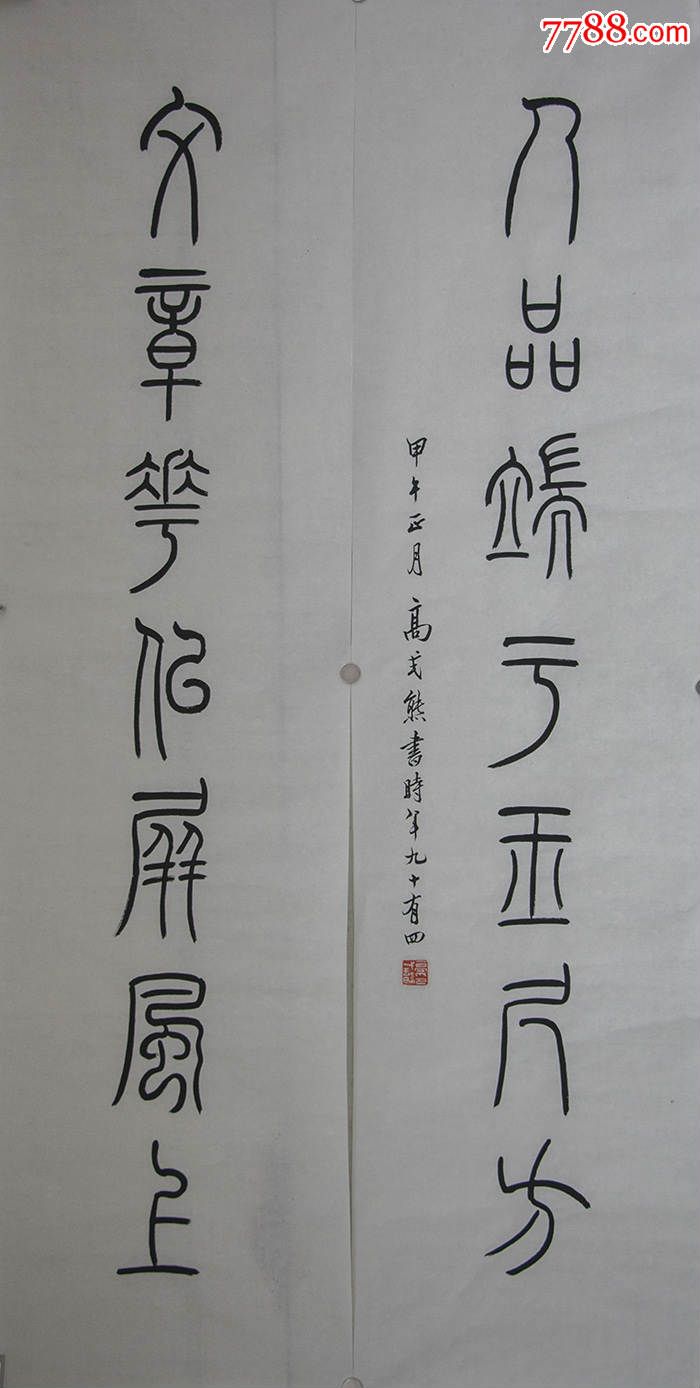 7788.com
人品端于玉尺方
文章華似屏風上
甲午正月 高式熊書時年九十有四